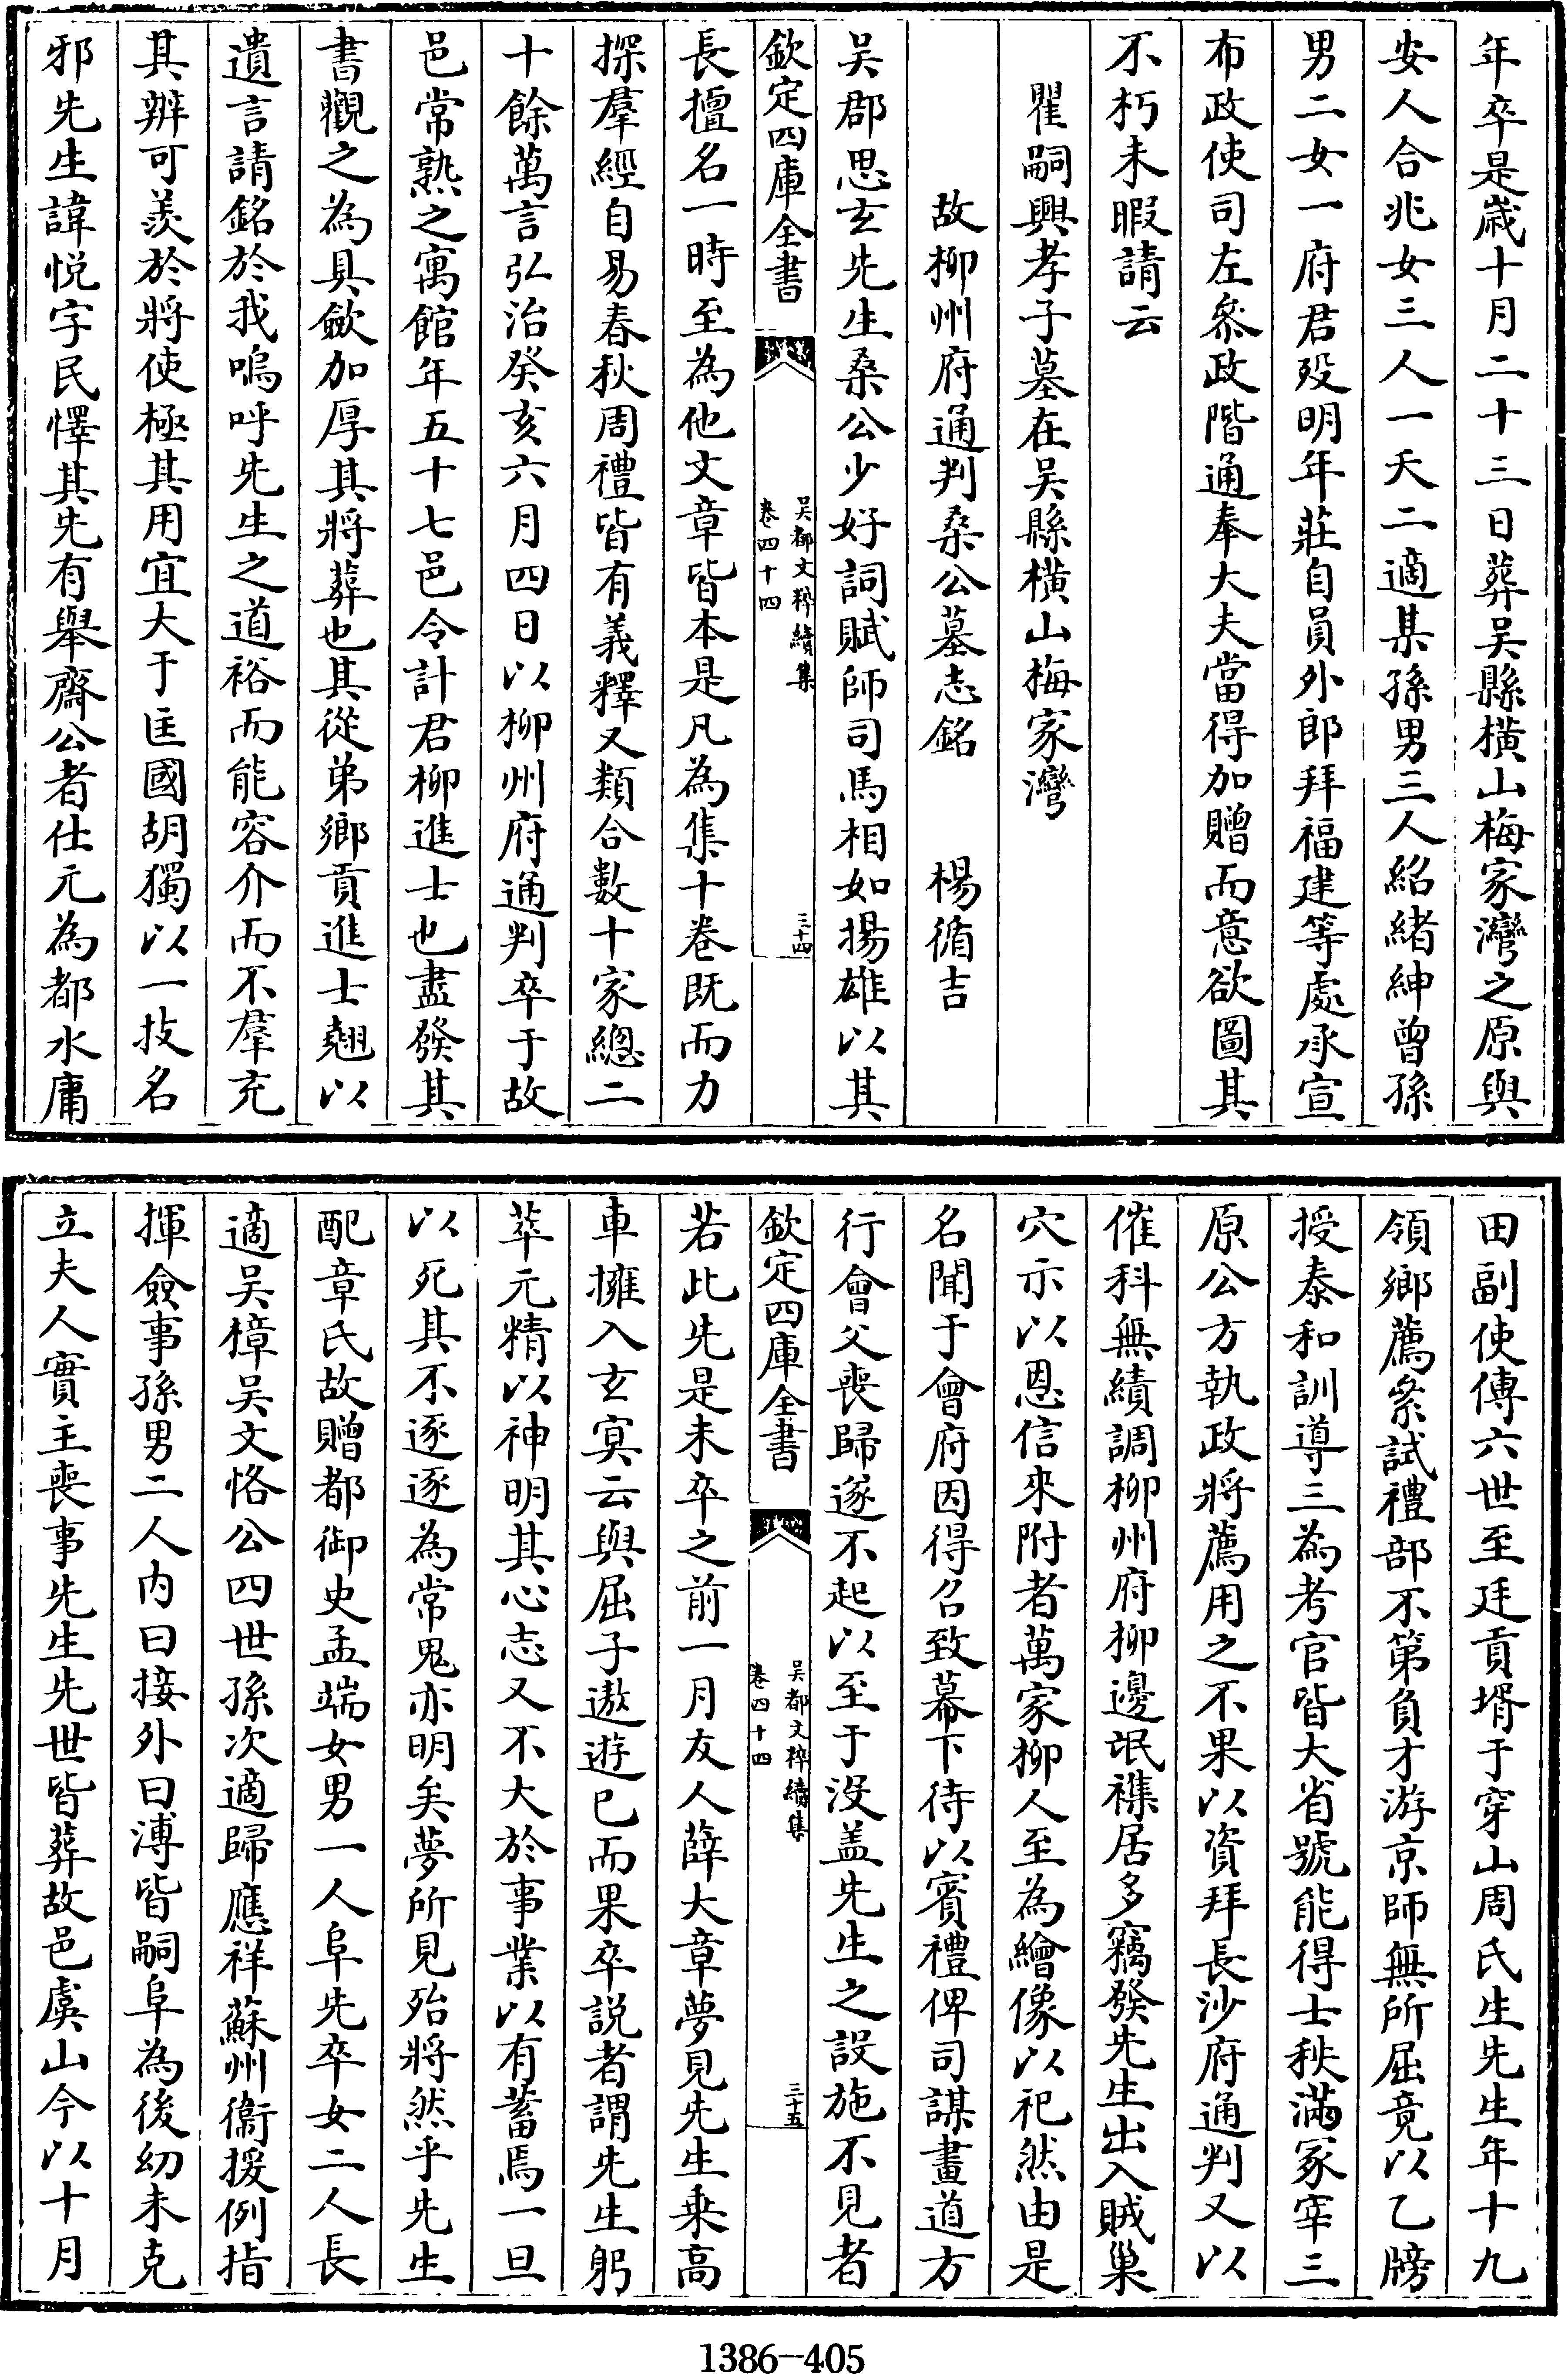 年卒是歲十月二十三日葬吳縣橫山梅家灣之原與
安人合兆女三人一夭二適某孫男三人紹緒紳曾孫
男二女一府君殁明年莊自員外郎拜福建等處承宣
布政使司左叅政階通奉大夫當得加贈而意欲圖其
不朽未暇請云
瞿嗣興孝子墓在吳縣橫山梅家灣
故柳州府通判桑公墓志銘　楊循吉
吳郡思玄先生桑公少好詞賦師司馬相如揚雄以其
欽定四庫全書
吳都文粹續集
卷四十四
三十四
長擅名一時至為他文章皆本是凡為集十卷既而力
探羣經自易春秋周禮皆有義釋又類合數十家總二
十餘萬言弘治癸亥六月四日以柳州府通判卒于故
邑常熟之寓館年五十七邑令計君柳進士也盡發其
書觀之為具歛加厚其將葬也其從弟鄉貢進士翹以
遺言請銘於我嗚呼先生之道裕而能容介而不羣充
其辨可羨於將使極其用宜大于匡國胡獨以一技名
邪先生諱悅字民懌其先有舉齋公者仕元為都水庸
田副使傳六世至廷貢壻于穿山周氏生先生年十九
領鄉薦叅試禮部不第負才游京師無所屈竟以乙牓
授泰和訓導三為考官皆大省號能得士秩滿冢宰三
原公方執政將薦用之不果以資拜長沙府通判又以
催科無績調柳州府柳邊氓襍居多竊發先生出入賊巢
穴示以恩信來附者萬家柳人至為繪像以祀然由是
名聞于會府因得召致幕下待以賓禮俾司謀畫道方
行會父喪歸遂不起以至于沒盖先生之設施不見者
欽定四庫全書
吳都文粹續集
卷四十四
三十五
若此先是未卒之前一月友人薛大章夢見先生乘高
車擁入玄冥云與屈子遨遊已而果卒說者謂先生躬
萃元精以神明其心志又不大於事業以有蓄焉一旦
以死其不逐逐為常鬼亦明矣夢所見殆將然乎先生
配章氏故贈都御史孟端女男一人阜先卒女二人長
適吳樟吳文恪公四世孫次適歸應祥蘇州衞援例指
揮僉事孫男二人内曰接外曰溥皆嗣阜為後幼未克
立夫人實主喪事先生先世皆葬故邑虞山今以十月
1386—405